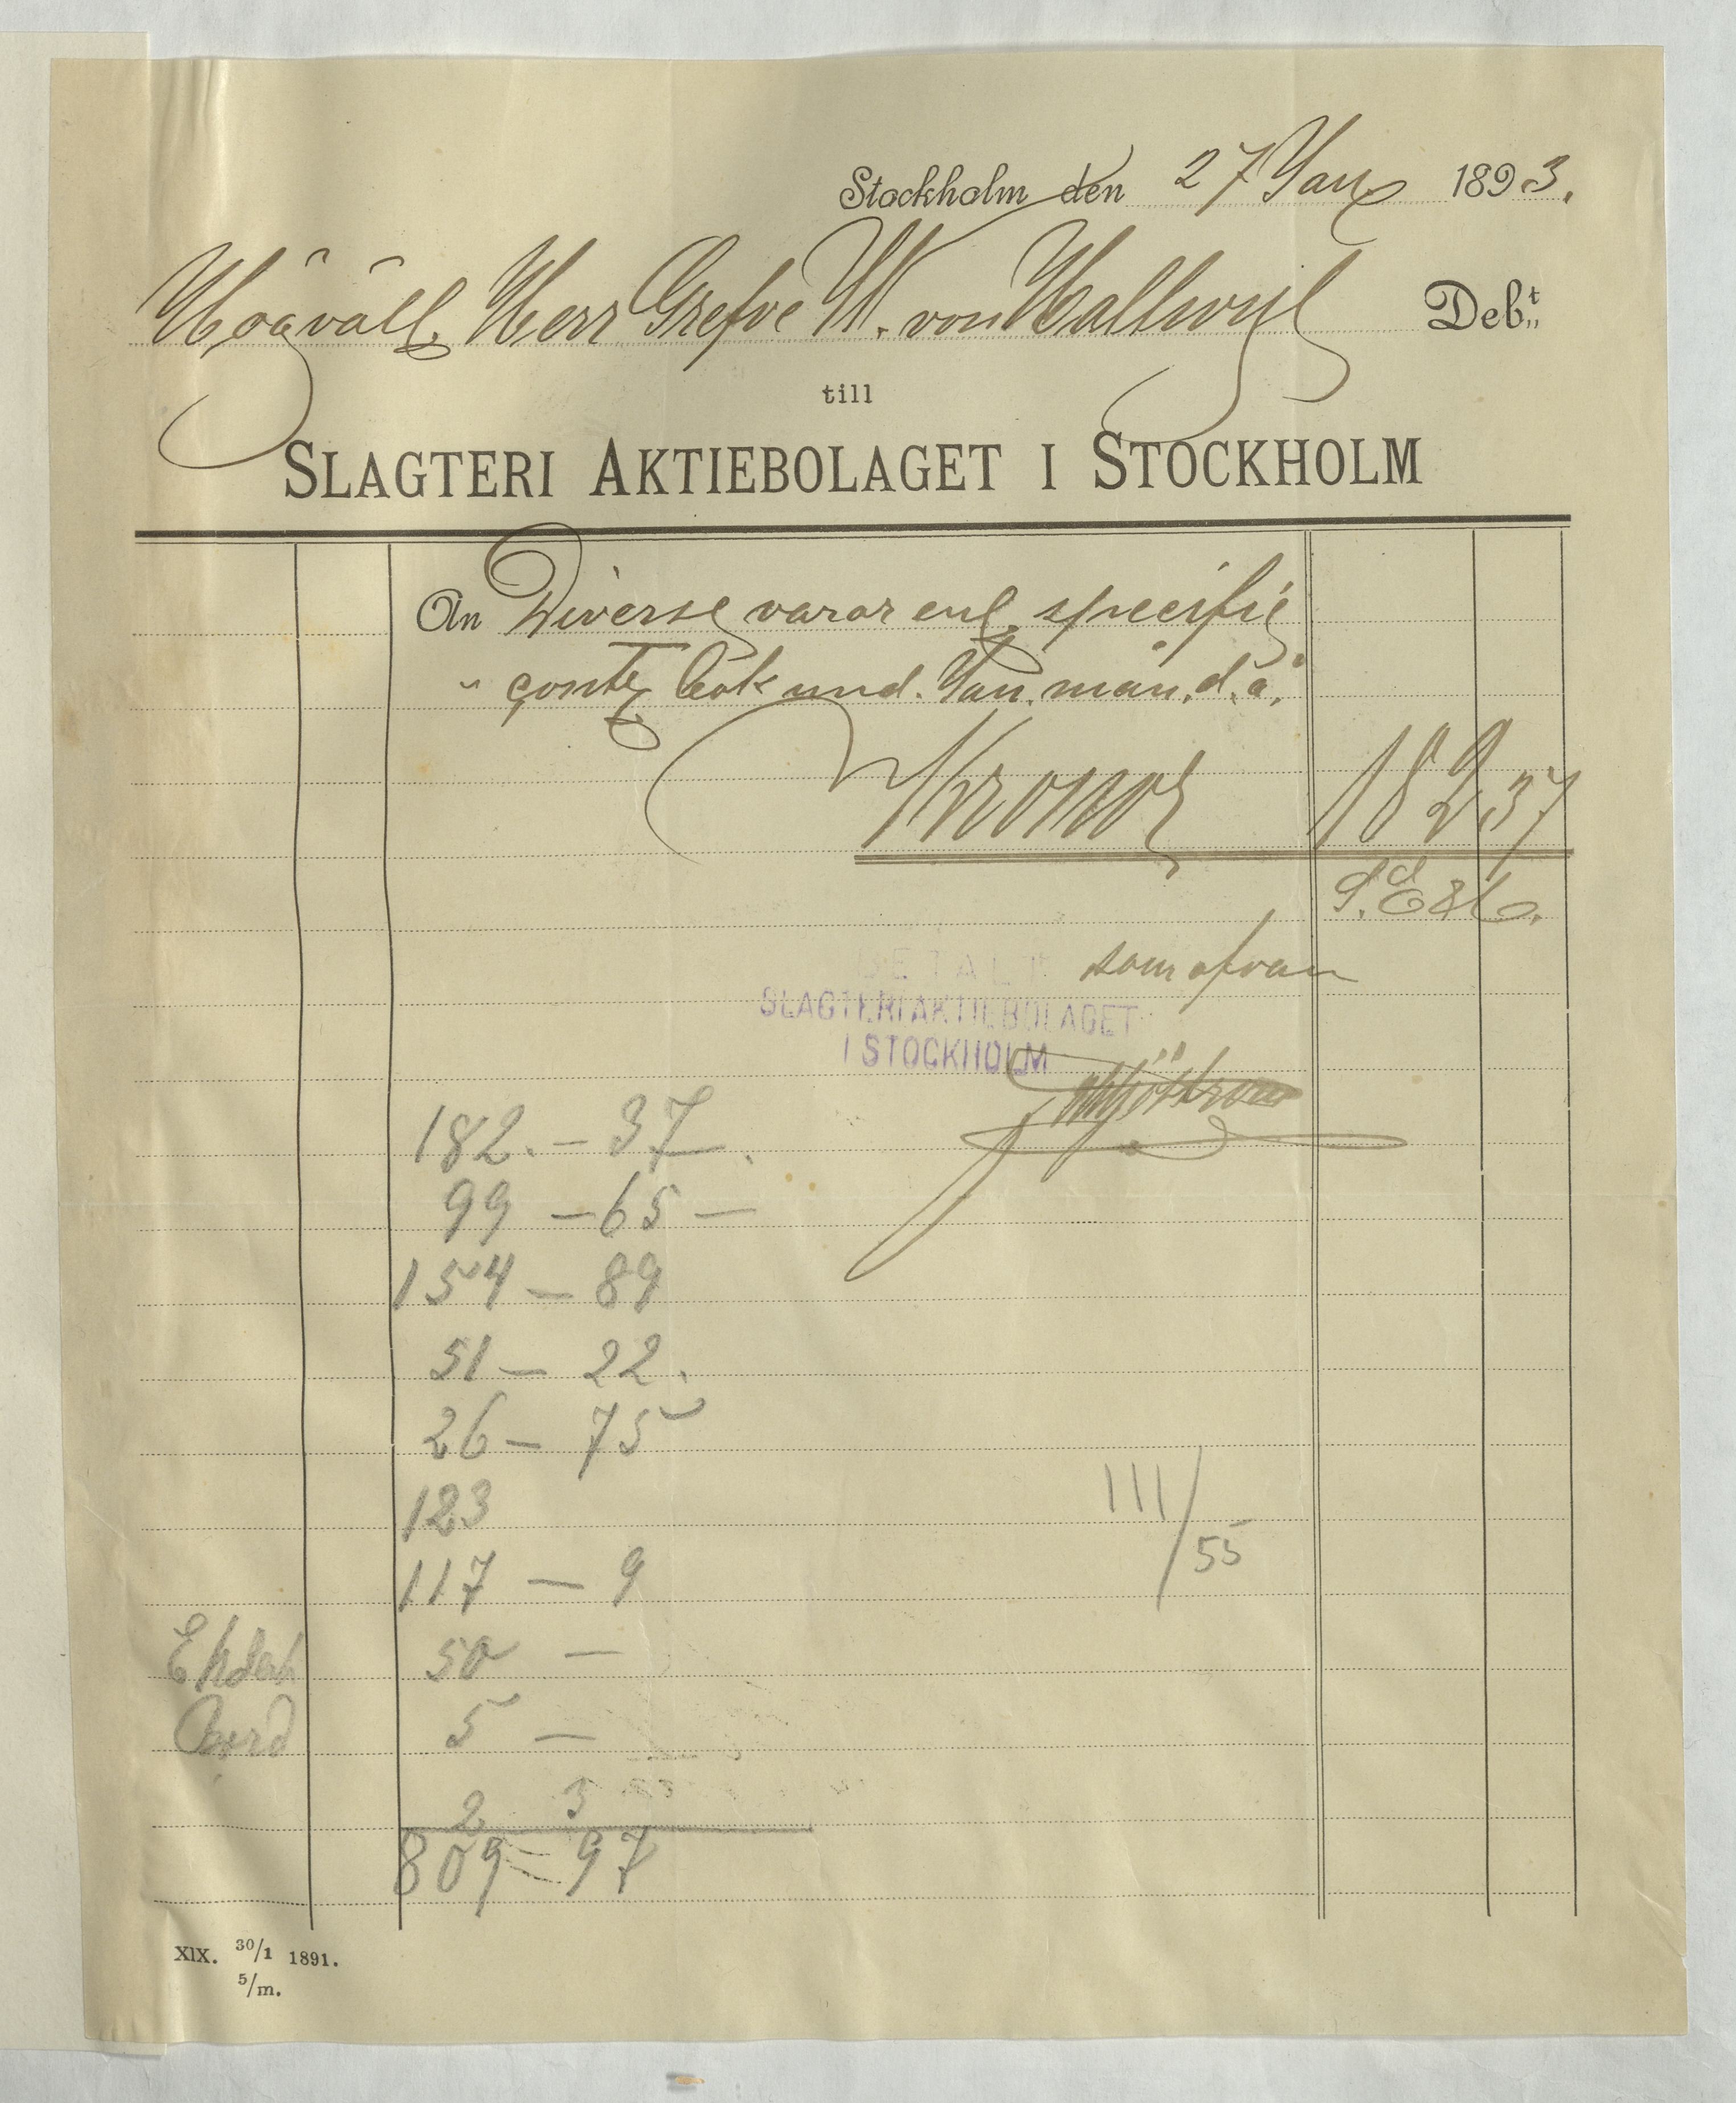 Stockholm den 27 Jan 1893.
Högväll. Herr Grefve W. von Hallwyl Deb:t
till
SLAGTERI AKTIEBOLAGET I STOCKHOLM
An Diverse varor enl. specifié
" conto bok und. Jan. mån. d.å.
Kronor 182 37
S.E&O.
som ofvan
BETALT
SLAGTERI AKTIEBOLAGET
I STOCKHOLM
182. – 37 .
99 – 65 –
154 – 89
51 – 22.
26 – 75
123
111/55
117 – 9
50 –
5 –
2 3
809 – 97
XIX. 30/1 1891.
5/m.